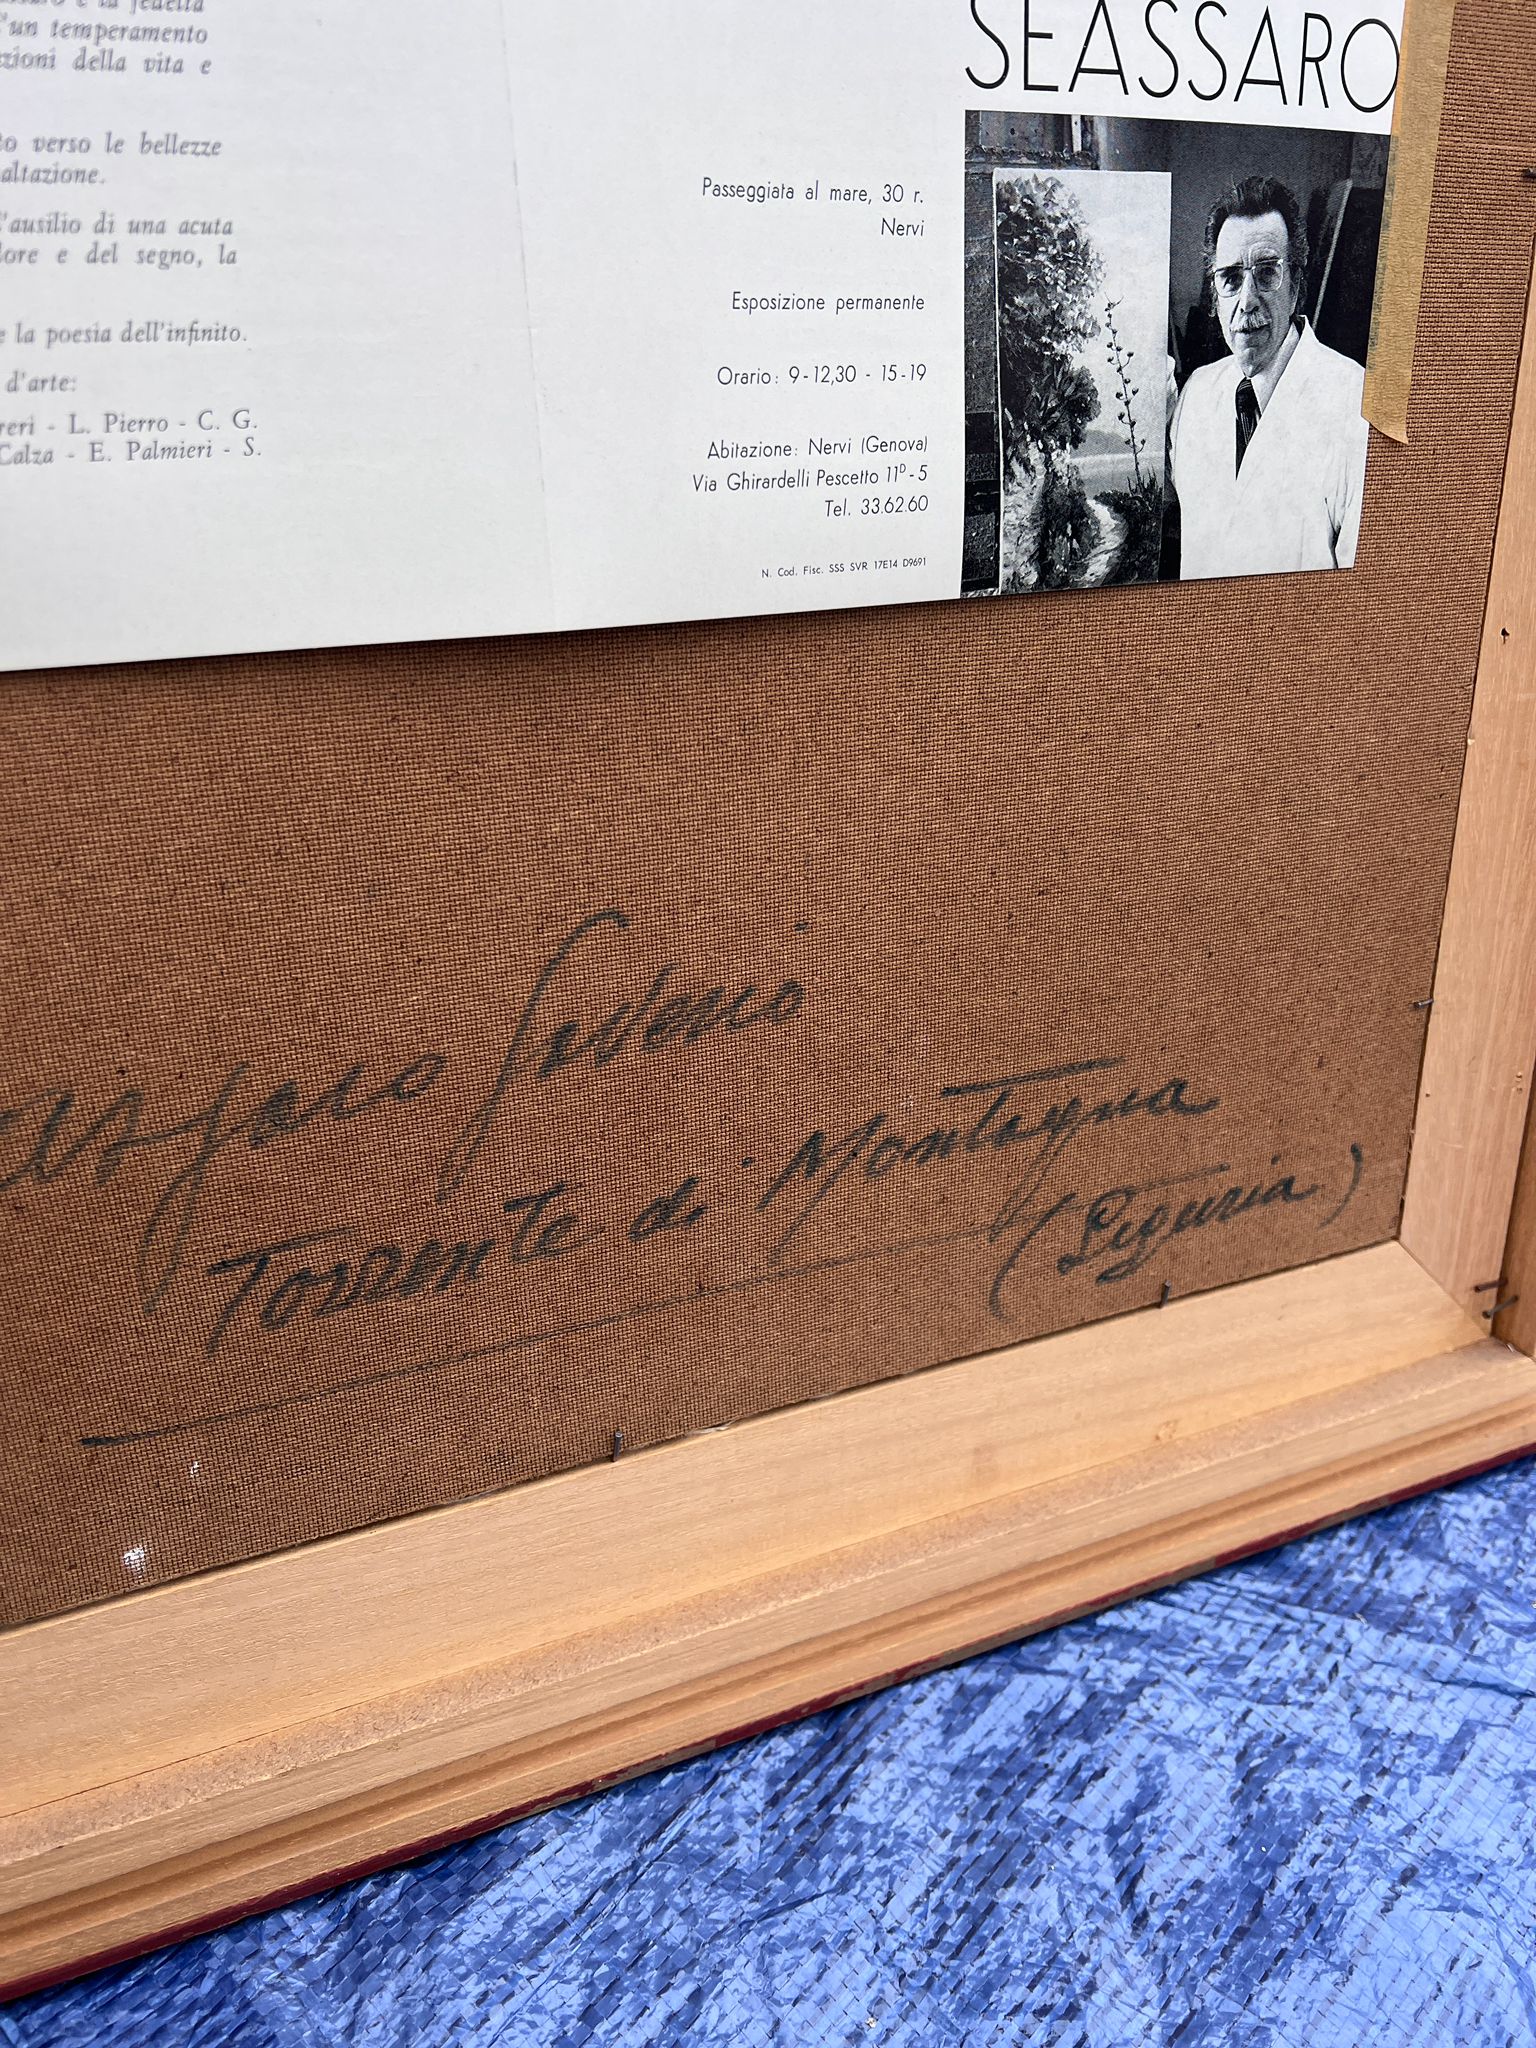 fedeltà
un temperamento
zioni della vita e
to verso le bellezze
altazione.
l'ausilio di una acuta
lore e del segno, la
e la poesia dell'infinito.
d'arte:
reri - L. Pierro - C. G.
Calza - E. Palmieri - S.
SEASSARO
Passeggiata al mare, 30 r.
Nervi
Esposizione permanente
Orario: 9-12,30 - 15-19
Abitazione: Nervi (Genova)
Via Ghirardelli Pescetto 11D-5
Tel. 33.62.60
N. Cod. Fisc. SSS SVR 17E14 D9691
assaro Saverio
Torrente di Montagna
(Liguria)